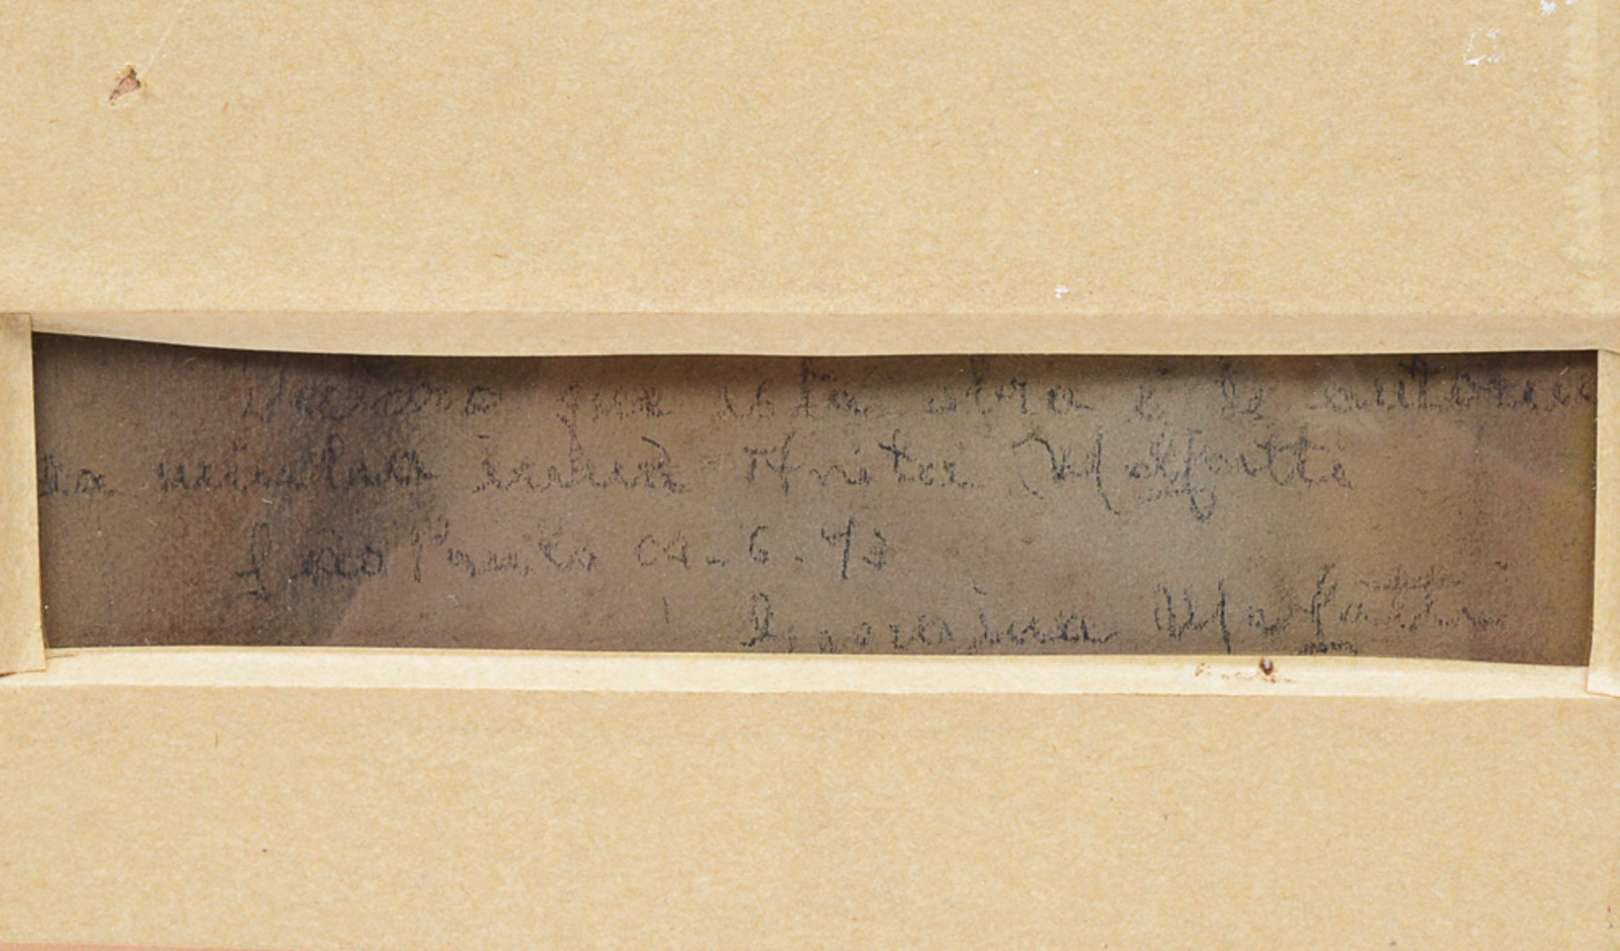 Declaro que esta obra é de autoria
da minha irmã Anita Malfatti
São Paulo 04-6-73
Georgina Malfatti